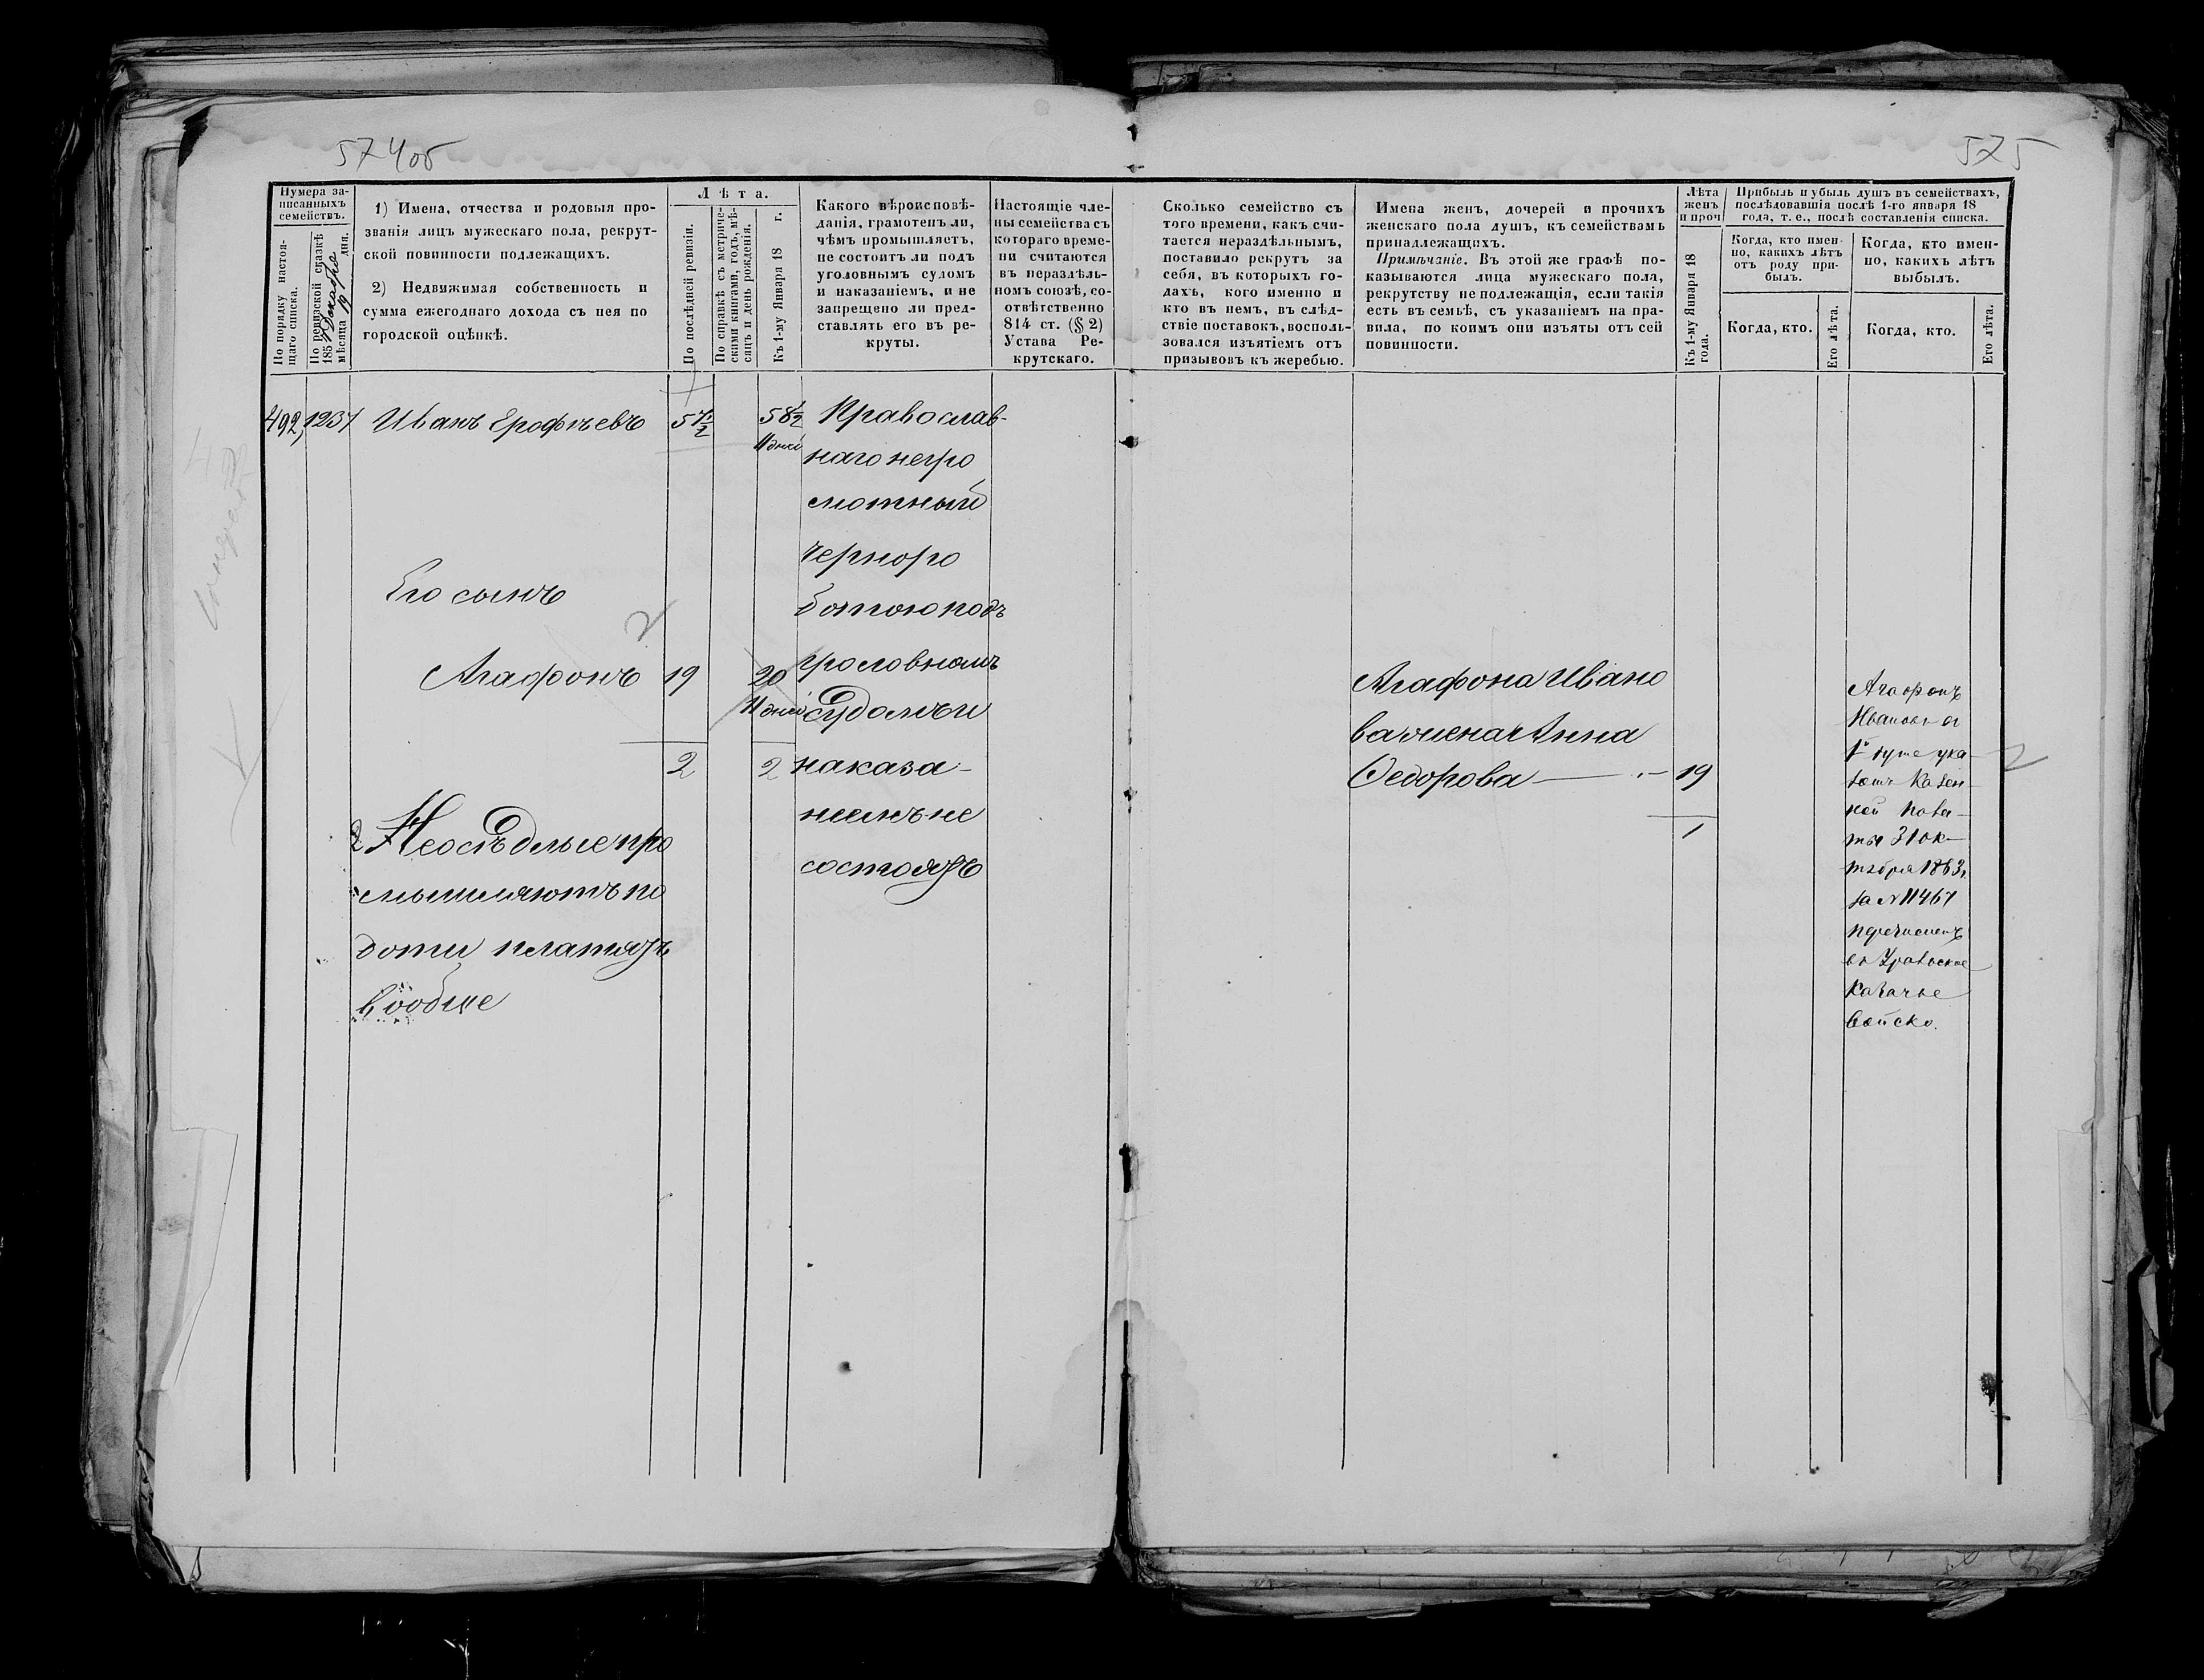 574об
575
Нумера за-
писанныхъ
семействъ.
По порядку настоя-
щаго списка.
По ревизской сказкѣ
185 Декабря
мѣсяца 19 дня.
1) Имена, отчества и родовыя про-
званія лицъ мужескаго пола, рекрут-
ской повинности подлежащихъ.
2) Недвижимая собственность и
сумма ежегоднаго дохода съ нея по
городской оцѣнкѣ.
Лѣта.
По послѣдней ревизіи.
По справкѣ съ метриче-
скими книгами, годъ, мѣ-
сяцъ и день рожденія.
Къ 1-му Января 18 г.
Какого вѣроисповѣ-
данія, грамотенъ ли,
чѣмъ промышляетъ,
не состоитъ ли подъ
уголовнымъ судомъ
и наказаніемъ, и не
запрещено ли пред-
ставлять его въ ре-
круты.
Настоящіе чле-
ны семейства съ
котораго време-
ни считаются
въ нераздѣль-
номъ союзѣ, со-
отвѣтственно
814 ст. (§ 2)
Устава Ре-
крутскаго.
Сколько семейство съ
того времени, какъ счи-
тается нераздѣльнымъ,
поставило рекрутъ за
себя, въ которыхъ го-
дахъ, кого именно и
кто въ немъ, въ слѣд-
ствіе поставокъ, восполь-
зовался изъятіемъ отъ
призывовъ къ жеребью.
Имена женъ, дочерей и прочихъ
женскаго пола душъ, къ семействамъ
принадлежащихъ.
Примѣчаніе. Въ этой же графѣ по-
казываются лица мужескаго пола,
рекрутству не подлежащія, если такія
есть въ семьѣ, съ указаніемъ на пра-
вила, по коимъ они изъяты отъ сей
повинности.
Лѣта
женъ
и проч
Къ 1-му Января 18
года.
Прибыль и убыль душъ въ семействахъ,
послѣдовавшія послѣ 1-го января 18
года, т. е., послѣ составленія списка.
Когда, кто имен-
но, какихъ лѣтъ
отъ роду при-
былъ.
Когда, кто.
Его лѣта.
Когда, кто имен-
но, какихъ лѣтъ
выбылъ.
Когда, кто.
Его лѣта.
492, 1237 Иванъ Ерофѣевъ 57 1/2 58 1/2
11 дней
Его сынъ
Агафонъ 19 20
11 дней
2 2
2 Неосѣдлые про
мышляютъ по
доти платятъ
вообще
Православ-
наго негра
мотный
черноро
ботою подъ
уголовномъ
судомъ и
наказа-
ніемъ не
состоятъ
Агафона Ивано
ва жена Анна
Федорова — 19
1
Агафонъ
Ивановъ
1й душе ука
зомъ Казен-
ной Пала-
ты 31 ок-
тября 1863 г.
за № 11467
перечисленъ
въ Уральское
Казачье
Войско.
2